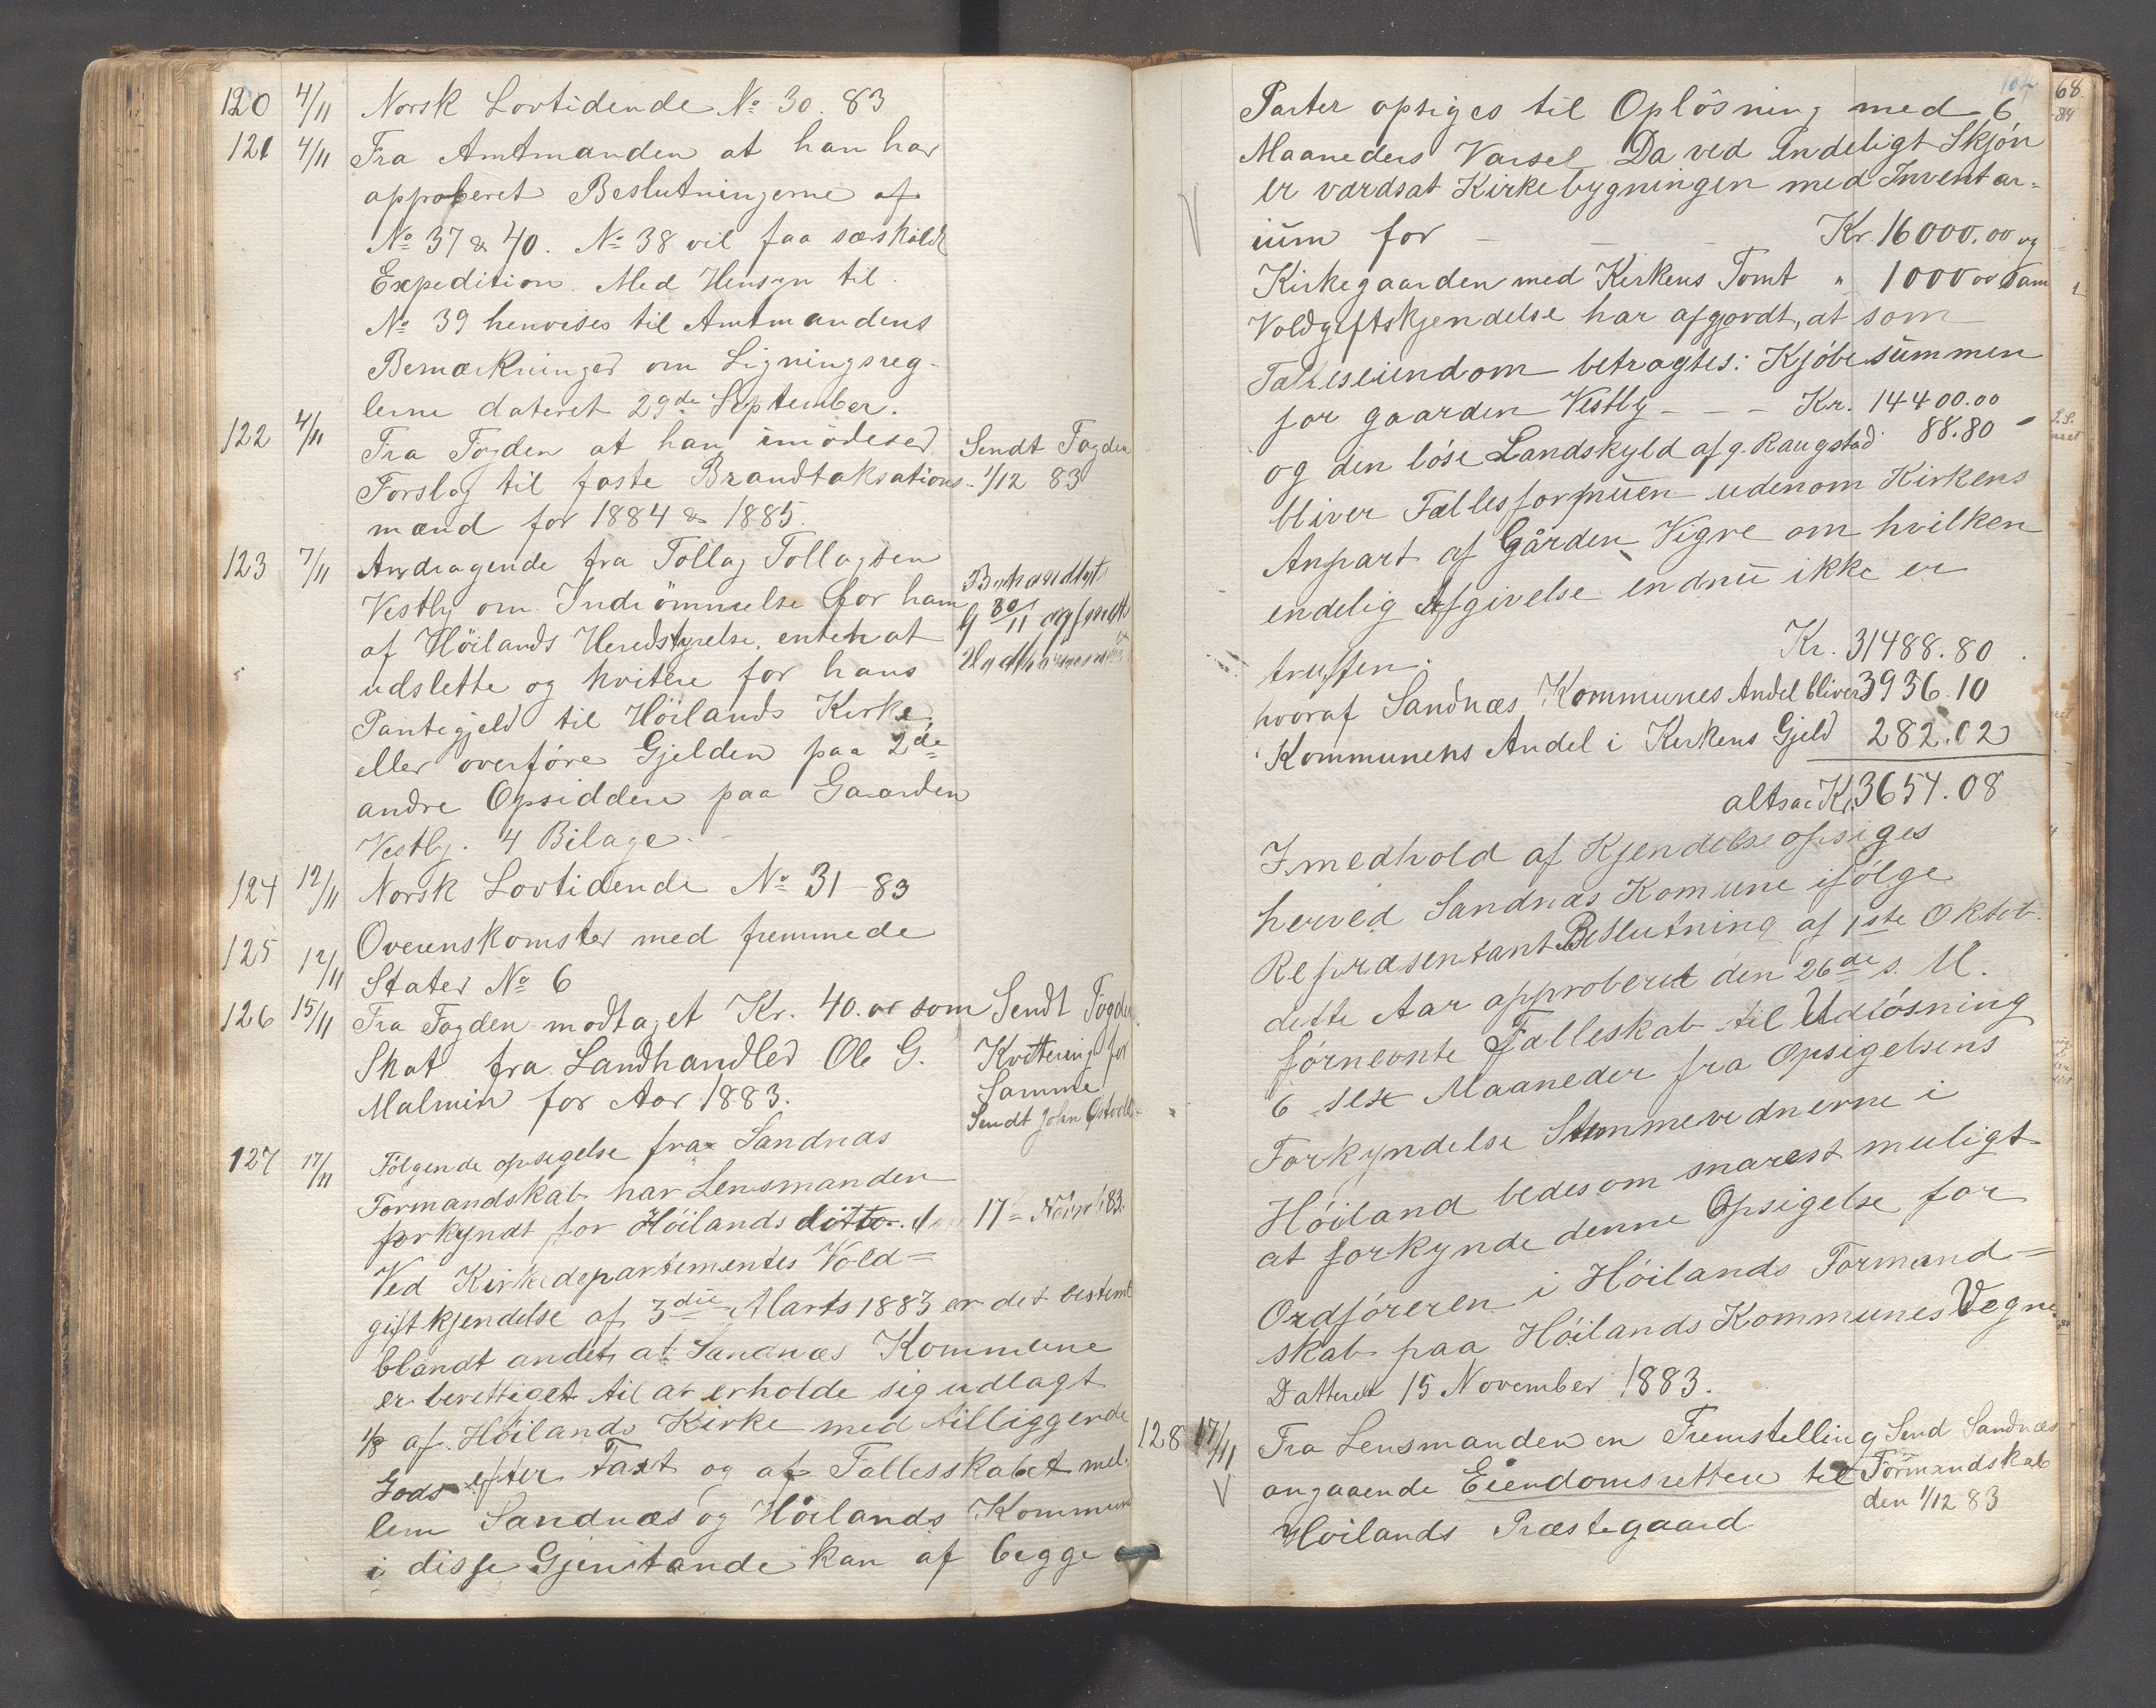 120 4/11 Norsk Lovtidende No 30. 83
121 4/11 Fra Amtmanden at han har
approberet Beslutningerne af
No 37 & 40. No 38 vil faa særskildt
Expedition. Med Hensyn til
No 39 henvises til Amtmandens
Bemærkninger om Ligningsreg-
lerne dateret 29de September.
122 4/11 Fra Fogden at han imödeser
Forslag til faste Brandtaksations-
mænd for 1884 & 1885.
Sendt Fogden
1/12 83
123 7/11 Andragende fra Tollag Tollagsen
Vestly om Indrömmelse for ham
af Höilands Heredstyrelse, enten at
udslette og kvitere for hans
Pantegjeld til Höilands Kirke
eller overföre Gjelden paa 2de
andre Opsiddere paa Gaarden
Vestly. 4 Bilage.
Behandlet
30/11 og sendt
124 12/11 Norsk Lovtidende No 31 - 83
125 12/11 Overenskomster med fremmede
Stater No 6
126 15/11 Fra Fogden modtaget Kr. 40.00 som
Skat fra Landhandler Ole G.
Malmin for Aar 1883.
Sendt Fogden
Kvittering for
Samme
Sendt John
127 17/11 Fölgende opsigelse fra Sandnæs
Formandskab har Lensmanden
forkyndt for Höilands ditto. den 17de Novbr 83.
Ved Kirkedepartementes Vold=
giftkjendelse af 3die Marts 1883 er det bestemt
blandt andet, at Sandnæs Kommune
er berettiget til at erholde sig udlagt
1/8 af Höilands Kirke med tilliggende
Gods efter Taxt og at Fællesskabet mel-
lem Sandnæs og Höilands Kommune
i disse Gjenstande kan af begge
104
Parter opsiges til Oplösning med 6
Maaneders Varsel. Da ved endeligt Skjön
er værdsat Kirkebygningen med Inventar-
ium for - - - Kr. 16000.00 og
Kirkegaarden med Kirkens Tomt " 1000 00 Sam
Voldgiftskjendelse har afgjordt, at som
Fælleseiendom betragtes: Kjöbesummen
for gaarden Vestly - - - Kr. 14400.00
og den löse Landskyld af g. Raugstad 88.80
bliver Fællesformuen udenom Kirkens
Anpart af Gården Vigre om hvilken
endelig Afgivelse endnu ikke er
truffen. Kr. 31488.80
hvoraf Sandnæs Kommunes Andel bliver 3936.10
Kommunens Andel i Kirkens Gjeld 282.02
altsaa Kr. 3654.08
I medhold af Kjendelse opsiges
herved Sandnæs Komune ifölge
RepræsentantBeslutning af 1ste Oktob.
dette Aar approberet den 26de s. M.
förnevnte Fælleskab til Udlösning
6 sex Maaneder fra Opsigelsens
Forkyndelse Stevnevidnerne i
Höiland bedes om snarest muligt
at forkynde denne Opsigelse for
Ordföreren i Höilands Formand=
skab paa Höilands Kommunes Vegne
Datteret 15 November 1883.
128 17/11 Fra Lensmanden en Fremstelling
angaaende Eiendomsretten til
Höilands Præstegaard
Send Sandnæs
Formandskab
den 1/12 83